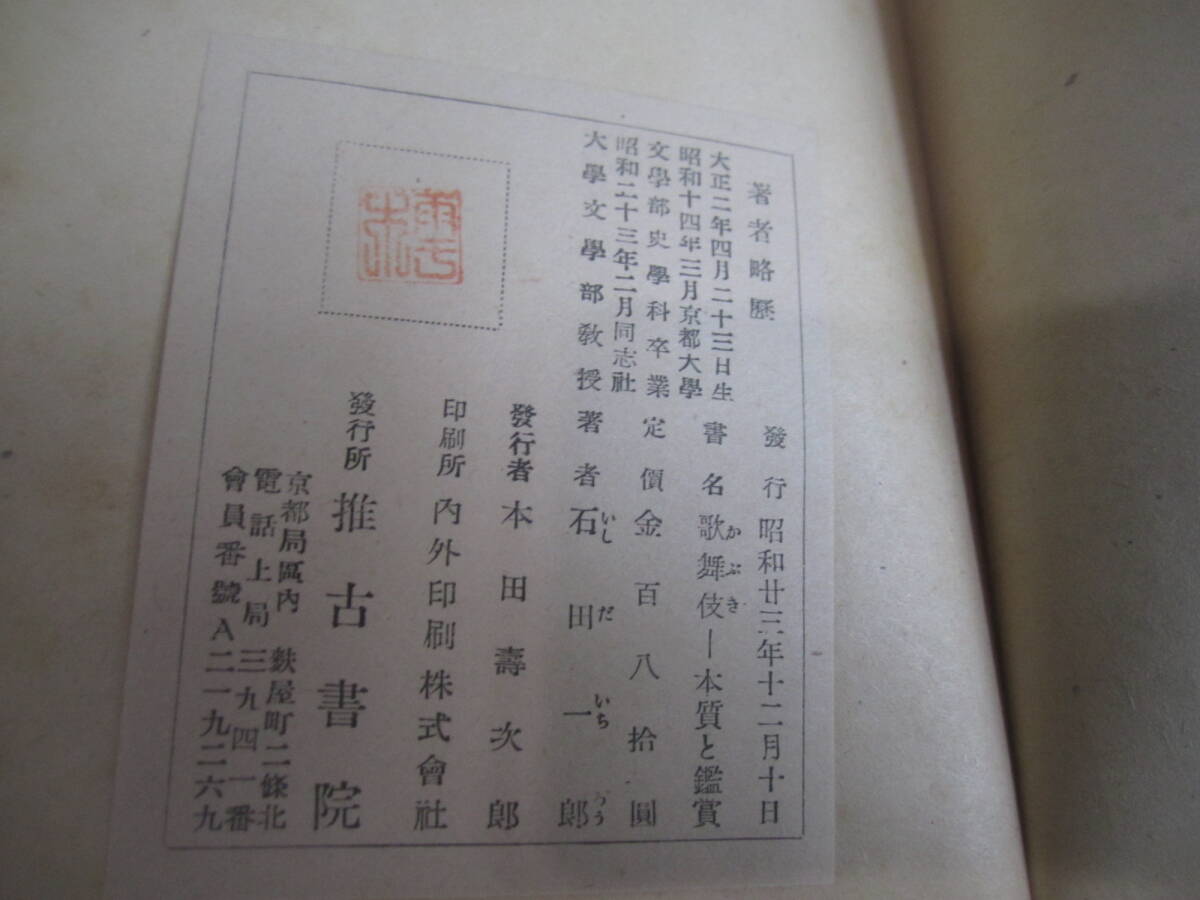 著者略歷
大正二年四月二十三日生
昭和十四年三月京都大學
文學部史學科卒業
昭和二十三年二月同志社
大學文學部教授
發行 昭和廿三年十二月十日
書名 歌舞伎ー本質と鑑賞
かぶき
定價 金百八拾圓
著者 石田一郎
いし だ いち らう
發行者 本田壽次郎
印刷所 內外印刷株式會社
發行所 推古書院
京都局區內 麩屋町二條北
電話上局三九四一番
會員番號A二一九二六九